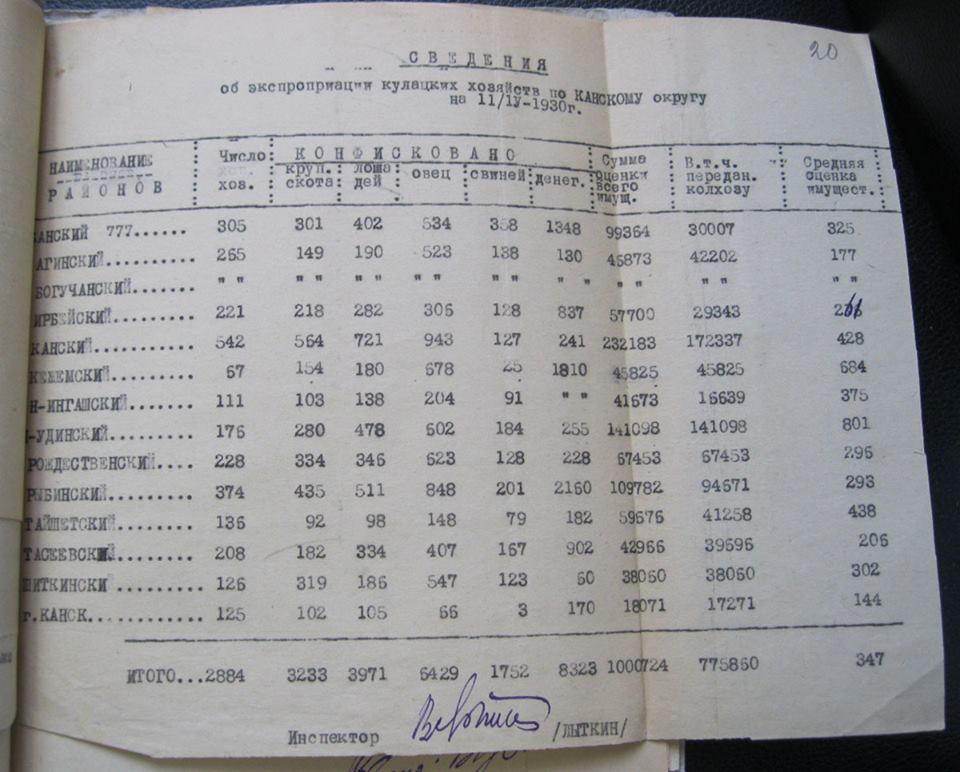 20
СВЕДЕНИЯ
об экспроприации кулацких хозяйств по КАНСКОМУ округу
на 11/IУ-1930г.
НАИМЕНОВАНИЕ РАЙОНОВ Число хоз. КОНФИСКОВАНО круп. скота: лоша дей: овец свиней денег. Сумма оценки всего имущ. В.т.ч. передан. колхозу Средняя оценка имущест.
АНСКИЙ 777...... 305 301 402 534 358 1348 99364 30007 325
АГИНСКИЙ.......... 265 149 190 523 138 130 45873 42202 177
БОГУЧАНСКИЙ....... " " " " " " " " " " " " " " " " " "
ИРБЕЙСКИЙ......... 221 218 282 306 128 837 57700 29343 261
КАНСКИЙ........... 542 564 721 943 127 241 232183 172337 428
КЕЖЕМСКИЙ......... 67 154 180 678 25 1810 45825 45825 684
Н-ИНГАШСКИЙ....... 111 103 138 204 91 " " 41673 16639 375
-УДИНСКИЙ......... 176 280 478 602 184 255 141098 141098 801
РОЖДЕСТВЕНСКИЙ.... 228 334 346 623 128 228 67453 67453 296
РЫБИНСКИЙ......... 374 435 511 848 201 2160 109782 94671 293
ТАЙШЕТСКИЙ........ 136 92 98 148 79 182 59676 41258 438
ТАСЕЕВСКИЙ........ 208 182 334 407 167 902 42966 39696 206
ШИТКИНСКИ ........ 126 319 186 547 123 60 38060 38060 302
г.КАНСК............ 125 102 105 66 3 170 18071 17271 144
ИТОГО...2884 3233 3971 6429 1752 8323 1000724 775860 347
Инспектор /ЛЫТКИН/